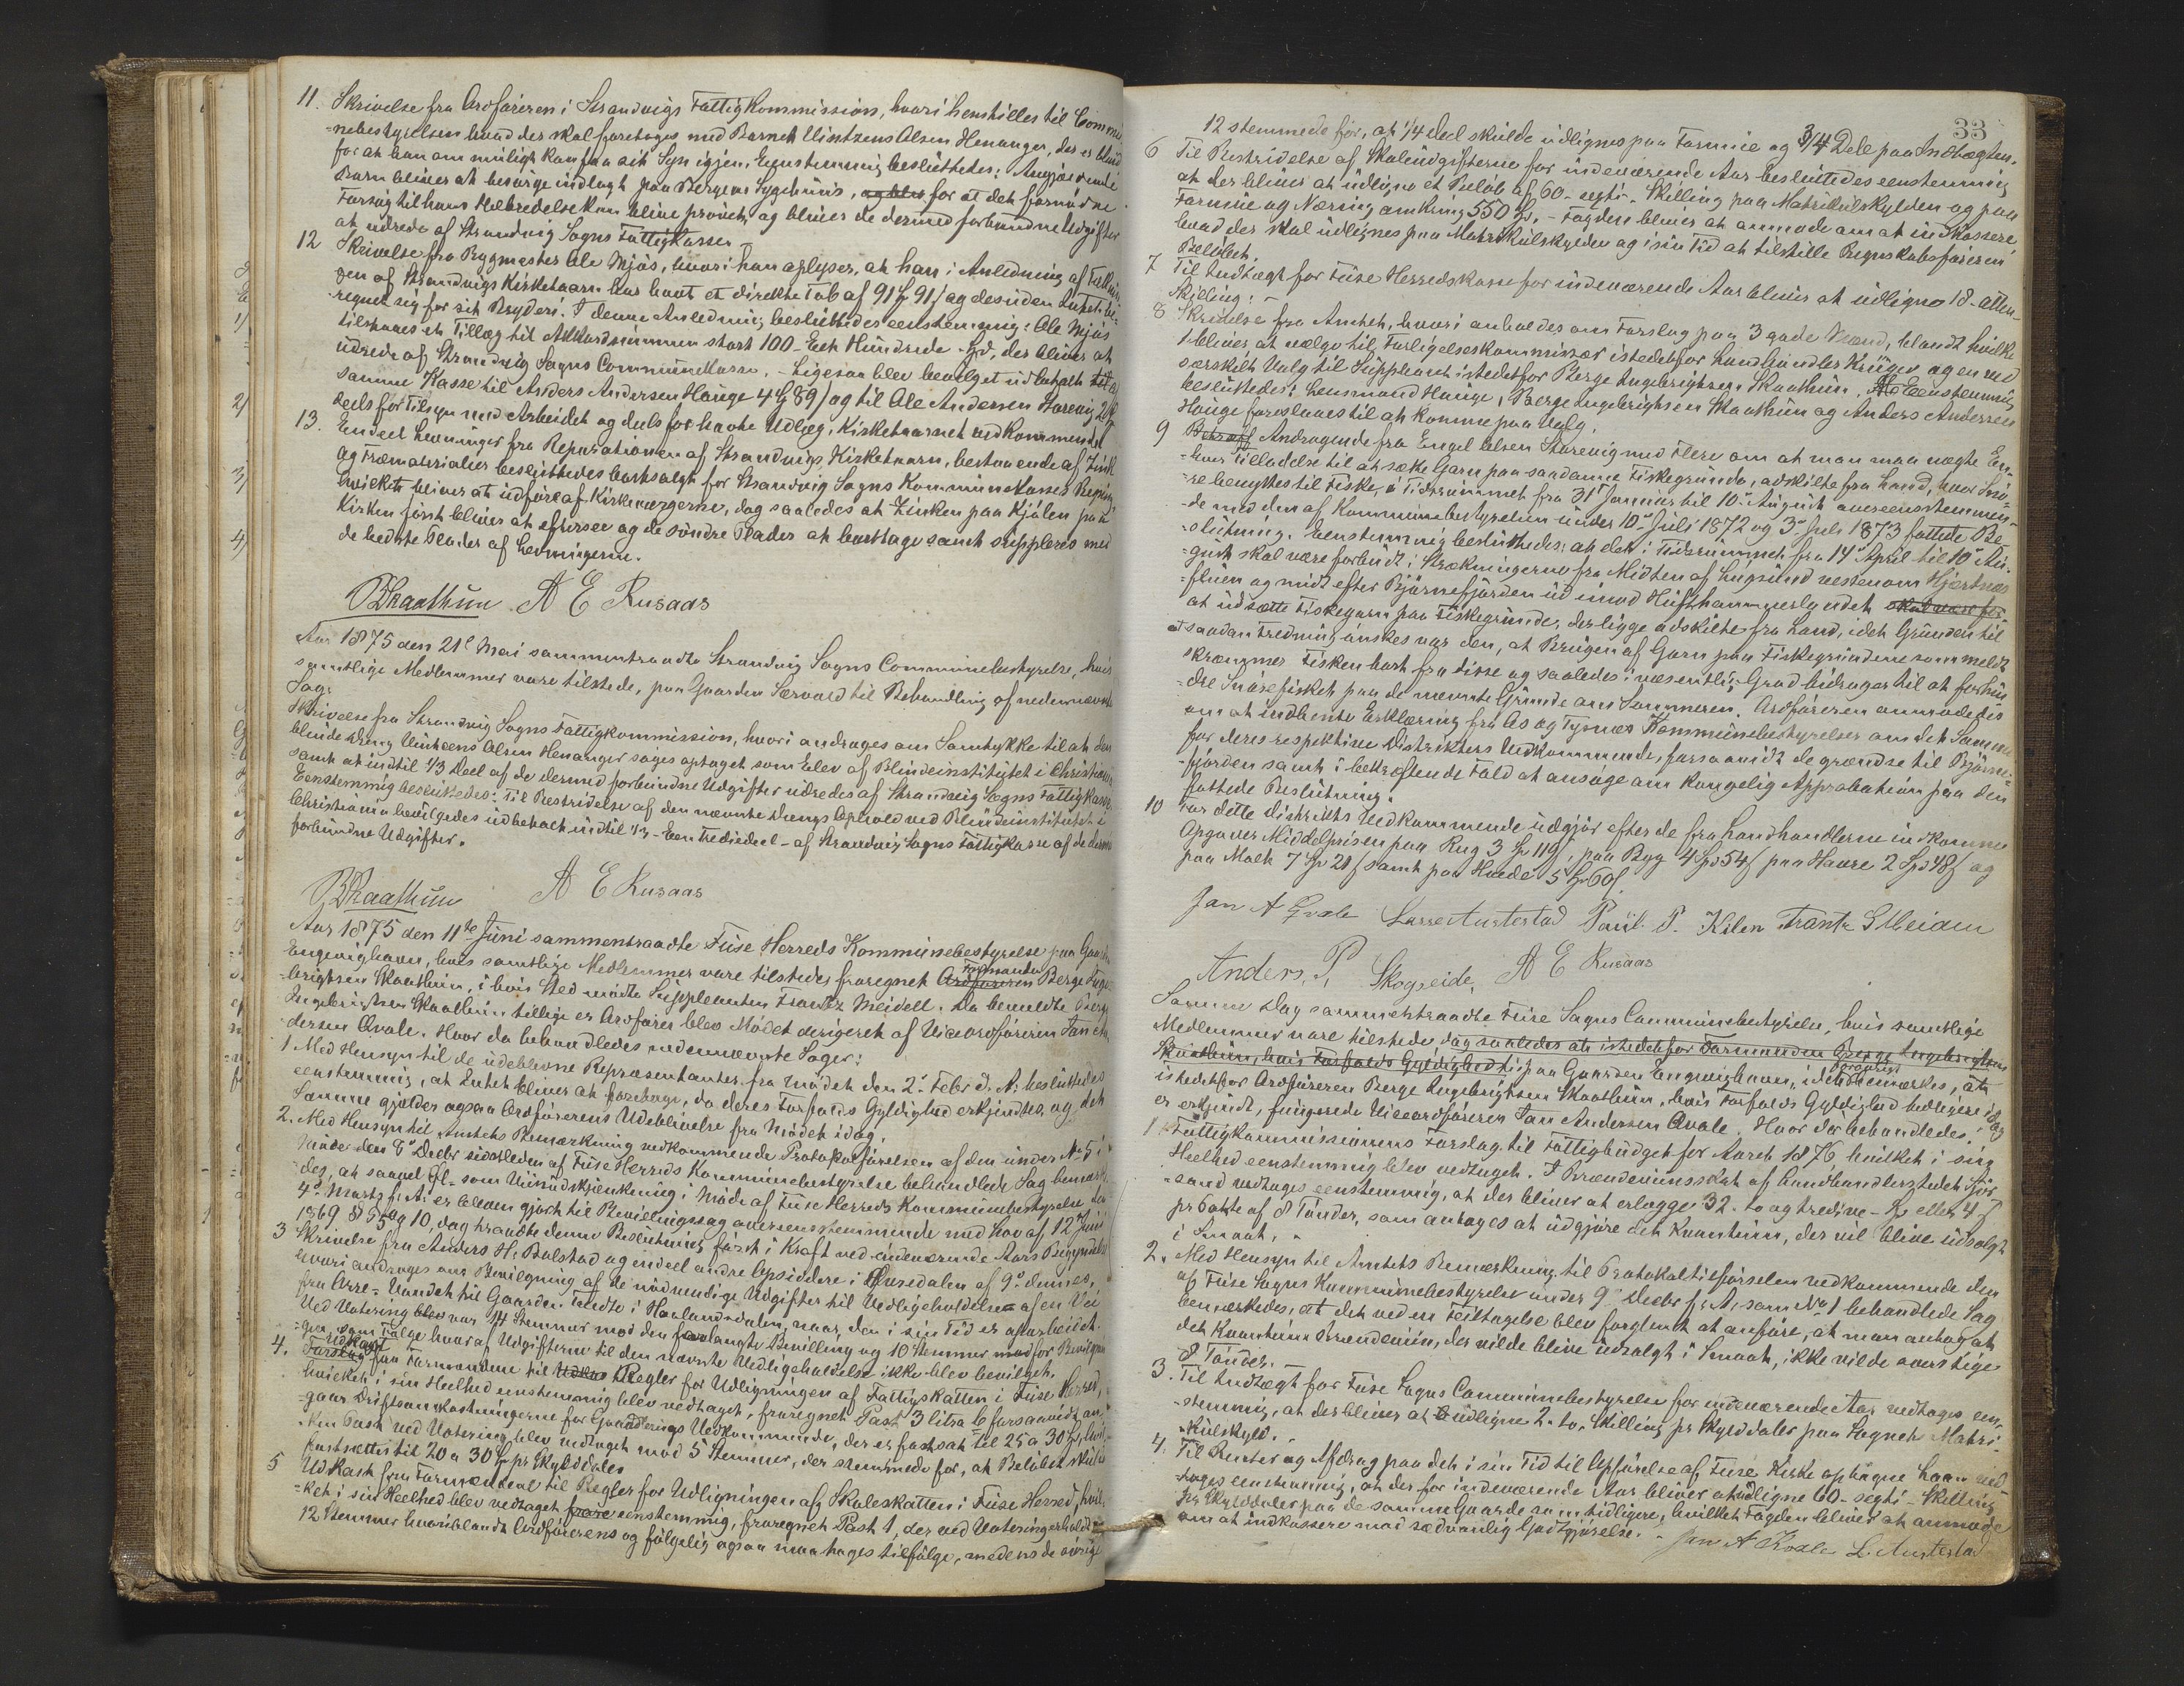 11. Skrivelse fra Ordføreren i Strandvigs Fattigkommission, hvori henstilles til Commu
=nebestyrelsen hvad der skal foretages med Barnet Olsen Henanger, der er blind
for at han om muligt kan faa sit Syn igjen. Eenstemmig besluttedes: Angjældende
Barn bliver at besørge indlagt paa Bergens Sygehuus, og blev for at det fornødne
Forsøg til hans Helbredelse kan blive prøvet, og bliver de dermed forbundne Udgifter
at udrede af Strandvig Sogns Fattigkasse.
12 Skrivelse fra Bygmester Ole Mjøs, hvori han oplyser, at han i Anledning af
gen af Strandvigs Kirketaarn har havt et direkte Tab af 91 Spd 91 ß og desuden Intet be-
regnet sig for sit Bryderi. I denne Anledning besluttedes eenstemmig: Ole Mjøs
tilstaaes et Tillæg til Akkordsummen stort 100 - Eet Hundrede - Spd, der bliver at
udrede af Strandvig Sogns Communekasse. - Ligesaa blev bevilget udbetalt
samme Kasse til Anders Andersen Hauge 4 Spd 89 ß og til Ole Andersen Storevig 2 Spd
deels for Tilsyn med Arbeidet og deels for havte Udlæg, Kirketaarnet vedkommende.
13. Endeel Levninger fra Reparationen af Strandvigs Kirketaarn, bestaaende af Zink
og Træmaterialier besluttedes bortsolgt for Strandvig Sogns Kommunekasses Regning
hvilket bliver at udføre af Kirkeværgerne, dog saaledes at Zinken paa Kjølen paa
Kirken først bliver at efterses og de søndre Plader at borttage samt suppleres med
de bedste Plader af Levningerne.
BSkaathun A E Rusaas
Aar 1875 den 21de Mai sammentraadte Strandvig Sogns Communebestyrelse, hvis
samtlige Medlemmer vare tilstede, paa Gaarden Sævold til Behandling af nedennævnte
Sag:
Skrivelse fra Strandvig Sogns Fattigkommission, hvori andrages om Samtykke til at den
blinde Dreng Olsen Henanger søges optaget som Elev af Blindeinstitutet i Christiania
samt at indtil 1/3 Deel af de dermed forbundne Udgifter udredes af Strandvig Sogns Fattigkasse.
Eenstemmig besluttedes: Til Bestridelse af den nævnte Drengs Ophold ved Blindeinstitutet i
Christiania bevilgedes udbetalt indtil 1/3 - Een Trediedeel - af Strandvig Sogns Fattigkasse af de dermed
forbundne Udgifter.
BSkaathun A E Rusaas
Aar 1875 den 11te Juni sammentraadte Fuse Herreds Kommunebestyrelse paa Gaarden
Engevighavn, hvis samtlige Medlemmer vare tilstede, fraregnet Ordføreren Formanden Berge Inge-
brigtsen Skaathun, i hvis Sted mødte Suppleanten Frantz Meidell. Da bemeldte Berge
Ingebrigtsen Skaathun tillige er Ordfører blev Mødet dirigeret af Viceordføreren Jan An-
dersen Qvale. Hvor da behandledes nedennævnte Sager:
1 Med Hensyn til de udeblevne Repræsentanter fra Mødet den 2den Febr d. A: besluttedes
eenstemmig, at Intet bliver at foretage, da deres Forfalds Gyldighed erkjendtes, og det
Samme gjælder ogsaa Ordførerens Udeblivelse fra Mødet idag.
2. Med Hensyn til Amtets Bemærkning vedkommende Protokolførelsen af den under No 5 i
Møde den 8de Decbr sidstleden af Fuse Herreds Kommunebestyrelse behandlede Sag bemærke-
des, at saavel Øl- som Viinudskjænkning i Møde af Fuse Herreds Kommunebestyrelse den
4de Marts f: A: er bleven gjort til Bevillingssag overeensstemmende med Lov af 12 Juni
1869 § 5 og 10, dog traadte denne Beslutning først i Kraft ved indeværende Aars Begyndelse.
3 Skrivelse fra Anders H. Bolstad og endeel andre Opsiddere i Ousedalen af 9de dennes,
hvori andrages om Bevilgning af de nødvendige Udgifter til Vedligeholdelse af en Vei
fra Orre-Vandet til Gaarden i Haalandsdalen, naar den i sin Tid er oparbeidet.
Ved Votering blev var 14 Stemmer mod den forlangte Bevilling og 10 Stemmer mod for Bevilgnin-
gen, som Følge hvoraf Udgifterne til den nævnte Vedligeholdelse ikke blev bevilget.
4. Forslag Udkast fra Formændene til Udkas Regler for Udligningen af Fattigskatten i Fuse Herred,
hvilket i sin Heelhed eenstemmig blev vedtaget, fraregnet Post 3 litra b forsaavidt an-
gaar Driftsomkostningerne for Gaardbrugs Vedkommende, der er fastsat til 25 a 30 Spd, hvil-
ken Post ved Votering blev vedtaget mod 5 Stemmer, der stemmede for, at Beløbet skulde
fastsættes til 20 a 30 Spd pr Skylddaler
5 Udkast fra Formændene til Regler for Udligningen af Skoleskatten i Fuse Herred, hvil-
ket i sin Heelhed blev vedtaget eenstemmig, fraregnet Post 1, der ved Votering erholdt
12 Stemmer hvoriblandt Ordførerens og følgelig ogsaa maa tages tilfølge, medens de øvrige
33
12 stemmede for, at 1/4 Deel skulde udlignes paa Formue og 3/4 Dele paa Indtægten.
6 Til Bestridelse af Skoleudgifterne for indeværende Aar besluttedes eenstemmig
at der bliver at udligne et Beløb af 60 - sexti - Skilling paa Matrikulskylden og paa
Formue og Næring omkring 550 Spd. - Fogden bliver at anmode om at indkassere
hvad der skal udlignes paa Matrikulskylden og i sin Tid at tilstille Regnskabsføreren
Beløbet.
7 Til Indtægt for Fuse Herredskasse for indeværende Aar bliver at udligne 18 - atten -
Skilling: -
8 Skrivelse fra Amtet, hvori anholdes om Forslag paa 3 gode Mænd, blandt hvilke
1 bliver at vælge til Forligelseskommissær istedetfor Landhandler Krüger og en ved
særskilt Valg til Suppleant istedetfor Berge Ingebrigtsen Skaathun. Eenstemmig
besluttedes: Lensmand Hauge, Berge Ingebrigtsen Skaathun og Anders Andersen
Hauge foreslaaes til at komme paa Valg.
9 Andragende fra Engel Olsen Storevig med Flere om at man maa nægte En-
hver Tilladelse til at sætte Garn paa saadanne Fiskegrunde, adskilte fra Land, hvor Snø-
re benyttes til Fiske, i Tidsrummet fra 31te Januar til 10de August overeensstemmen-
de med den af Kommunebestyrelsen under 10de Juli 1872 og 3die Juli 1873 fattede Be-
slutning. Eenstemmig besluttedes: at det i Tidsrummet fra 14de April til 10de Au-
gust skal være forbudt i Strækningerne fra Midten af Lugsund vestenom Hjertnæs
fluen og midt efter Bjørnefjorden ud imod Hufthammerlandet skal være for
at udsætte Fiskegarn paa Fiskegrunde, der ligge adskilte fra Land, idet Grunden til
at saadan Fredning ønskes var den, at Brugen af Garn paa Fiskegrundene som meldt
skræmmer Fisken bort fra disse og saaledes i væsentlig Grad bidrager til at forhin-
dre Snørefisket paa de nævnte Grunde om Sommeren. Ordføreren anmodedes
om at indhente Erklæring fra Os og Tysnæs Kommunebestyrelser om det Samme
for deres respektive Distrikters Vedkommende, forsaavidt de grændse til Bjørne-
fjorden samt i bekræftende Fald at ansøge om kongelig Approbation paa den
fattede Beslutning.
10 For dette Distrikts Vedkommende udgjør efter de fra Landhandlerne indkomne
Opgaver Middelprisen paa Rug 3 Sp 119 ß, paa Byg 4 Spd 54 ß paa Havre 2 Spd 48 ß og
paa Malt 7 Sp 21 ß samt paa Hvede 5 Sp 60 ß.
Jan A Qvale Lasse Austestad Poul P. Kilen Frantz S Meidell
Anders P. Skogseide, A E Rusaas
Samme Dag sammentraadte Fuse Sogns Communebestyrelse, hvis samtlige
Medlemmer vare tilstede dog saaledes at istedetfor Formanden Berge Ingebrigtsen
Skaathun, hvis Forfalds Gyldighed paa Gaarden Engevighavn, idet forøvrigt bemærkes, at
istedetfor Ordføreren Berge Ingebrigtsen Skaathun, hvis Forfalds Gyldighed tidligere idag
er erkjendt, fungerede Viceordføreren Jan Andersen Qvale. Hvor der behandledes:
1 Fattigkommissionens Forslag til Fattigbudget for Aaret 1876 hvilket i sin
Heelhed eenstemmig blev vedtaget. I Brændeviinsskat af Landhandlerstedet
sund vedtages eenstemmig, at der bliver at erlægge 32 - to og tredive - Spd eller 4 ß
pr Potte af 8 Tønder, som antages at udgjøre det Kvantum, der vil blive udsolgt
i Smaat. -
2. Med Hensyn til Amtets Bemærkning til Protokoltilførselen vedkommende den
af Fuse Sogns Kommunebestyrelse under 9de Decbr f: A: som No 1 behandlede Sag
bemærkedes, at det ved en Feiltagelse blev forglemt at anføre, at man antog at
det Kvantum Brændeviin, der vilde blive udsolgt i Smaat, ikke vilde overstige
8 Tønder.
3. Til Indtægt for Fuse Sogns Communebestyrelse for indeværende Aar vedtages een-
stemmig, at der bliver at udligne 2 - to - Skilling pr Skylddaler paa Sognets Matri-
kulskyld. -
4. Til Renter og Afdrag paa det i sin Tid til Opførelse af Fuse Kirke optagne Laan ved-
tages eenstemmig, at der for indeværende Aar bliver at udligne 60 - sexti - Skilling
pr Skylddaler paa de samme Gaarde som tidligere, hvilket Fogden bliver at anmode
om at indkassere mod sædvanlig Godtgjørelse. -
Jan A Qvale L. Austestad